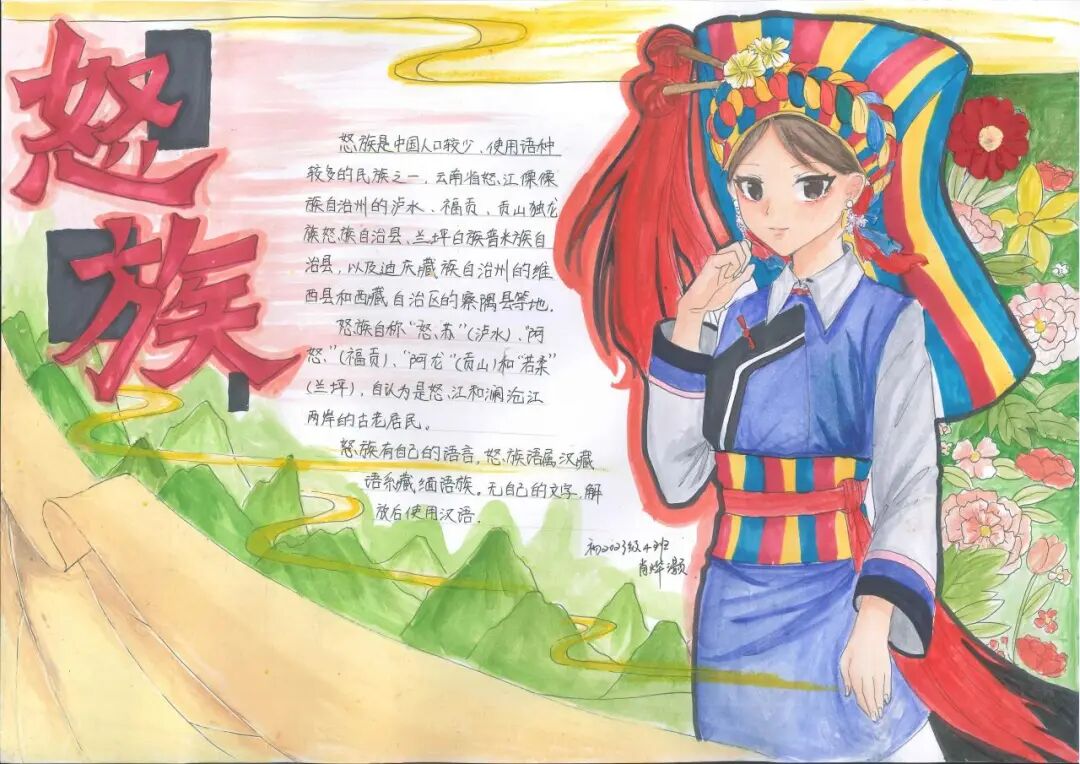 怒族
怒族是中国人口较少、使用语种
较多的民族之一,云南省怒江傈僳
族自治州的泸水、福贡、贡山独龙
族怒族自治县、兰坪白族普米族自
治县,以及迪庆藏族自治州的维
西县和西藏自治区的察隅县等地。
怒族自称“怒苏”(泸水)、“阿
怒”(福贡)、“阿龙”(贡山)和“若柔”
(兰坪),自认为是怒江和澜沧江
两岸的古老居民。
怒族有自己的语音,怒族语属汉藏
语系藏缅语族。无自己的文字,解
放后使用汉语.
初2023级4班
肖烨灏